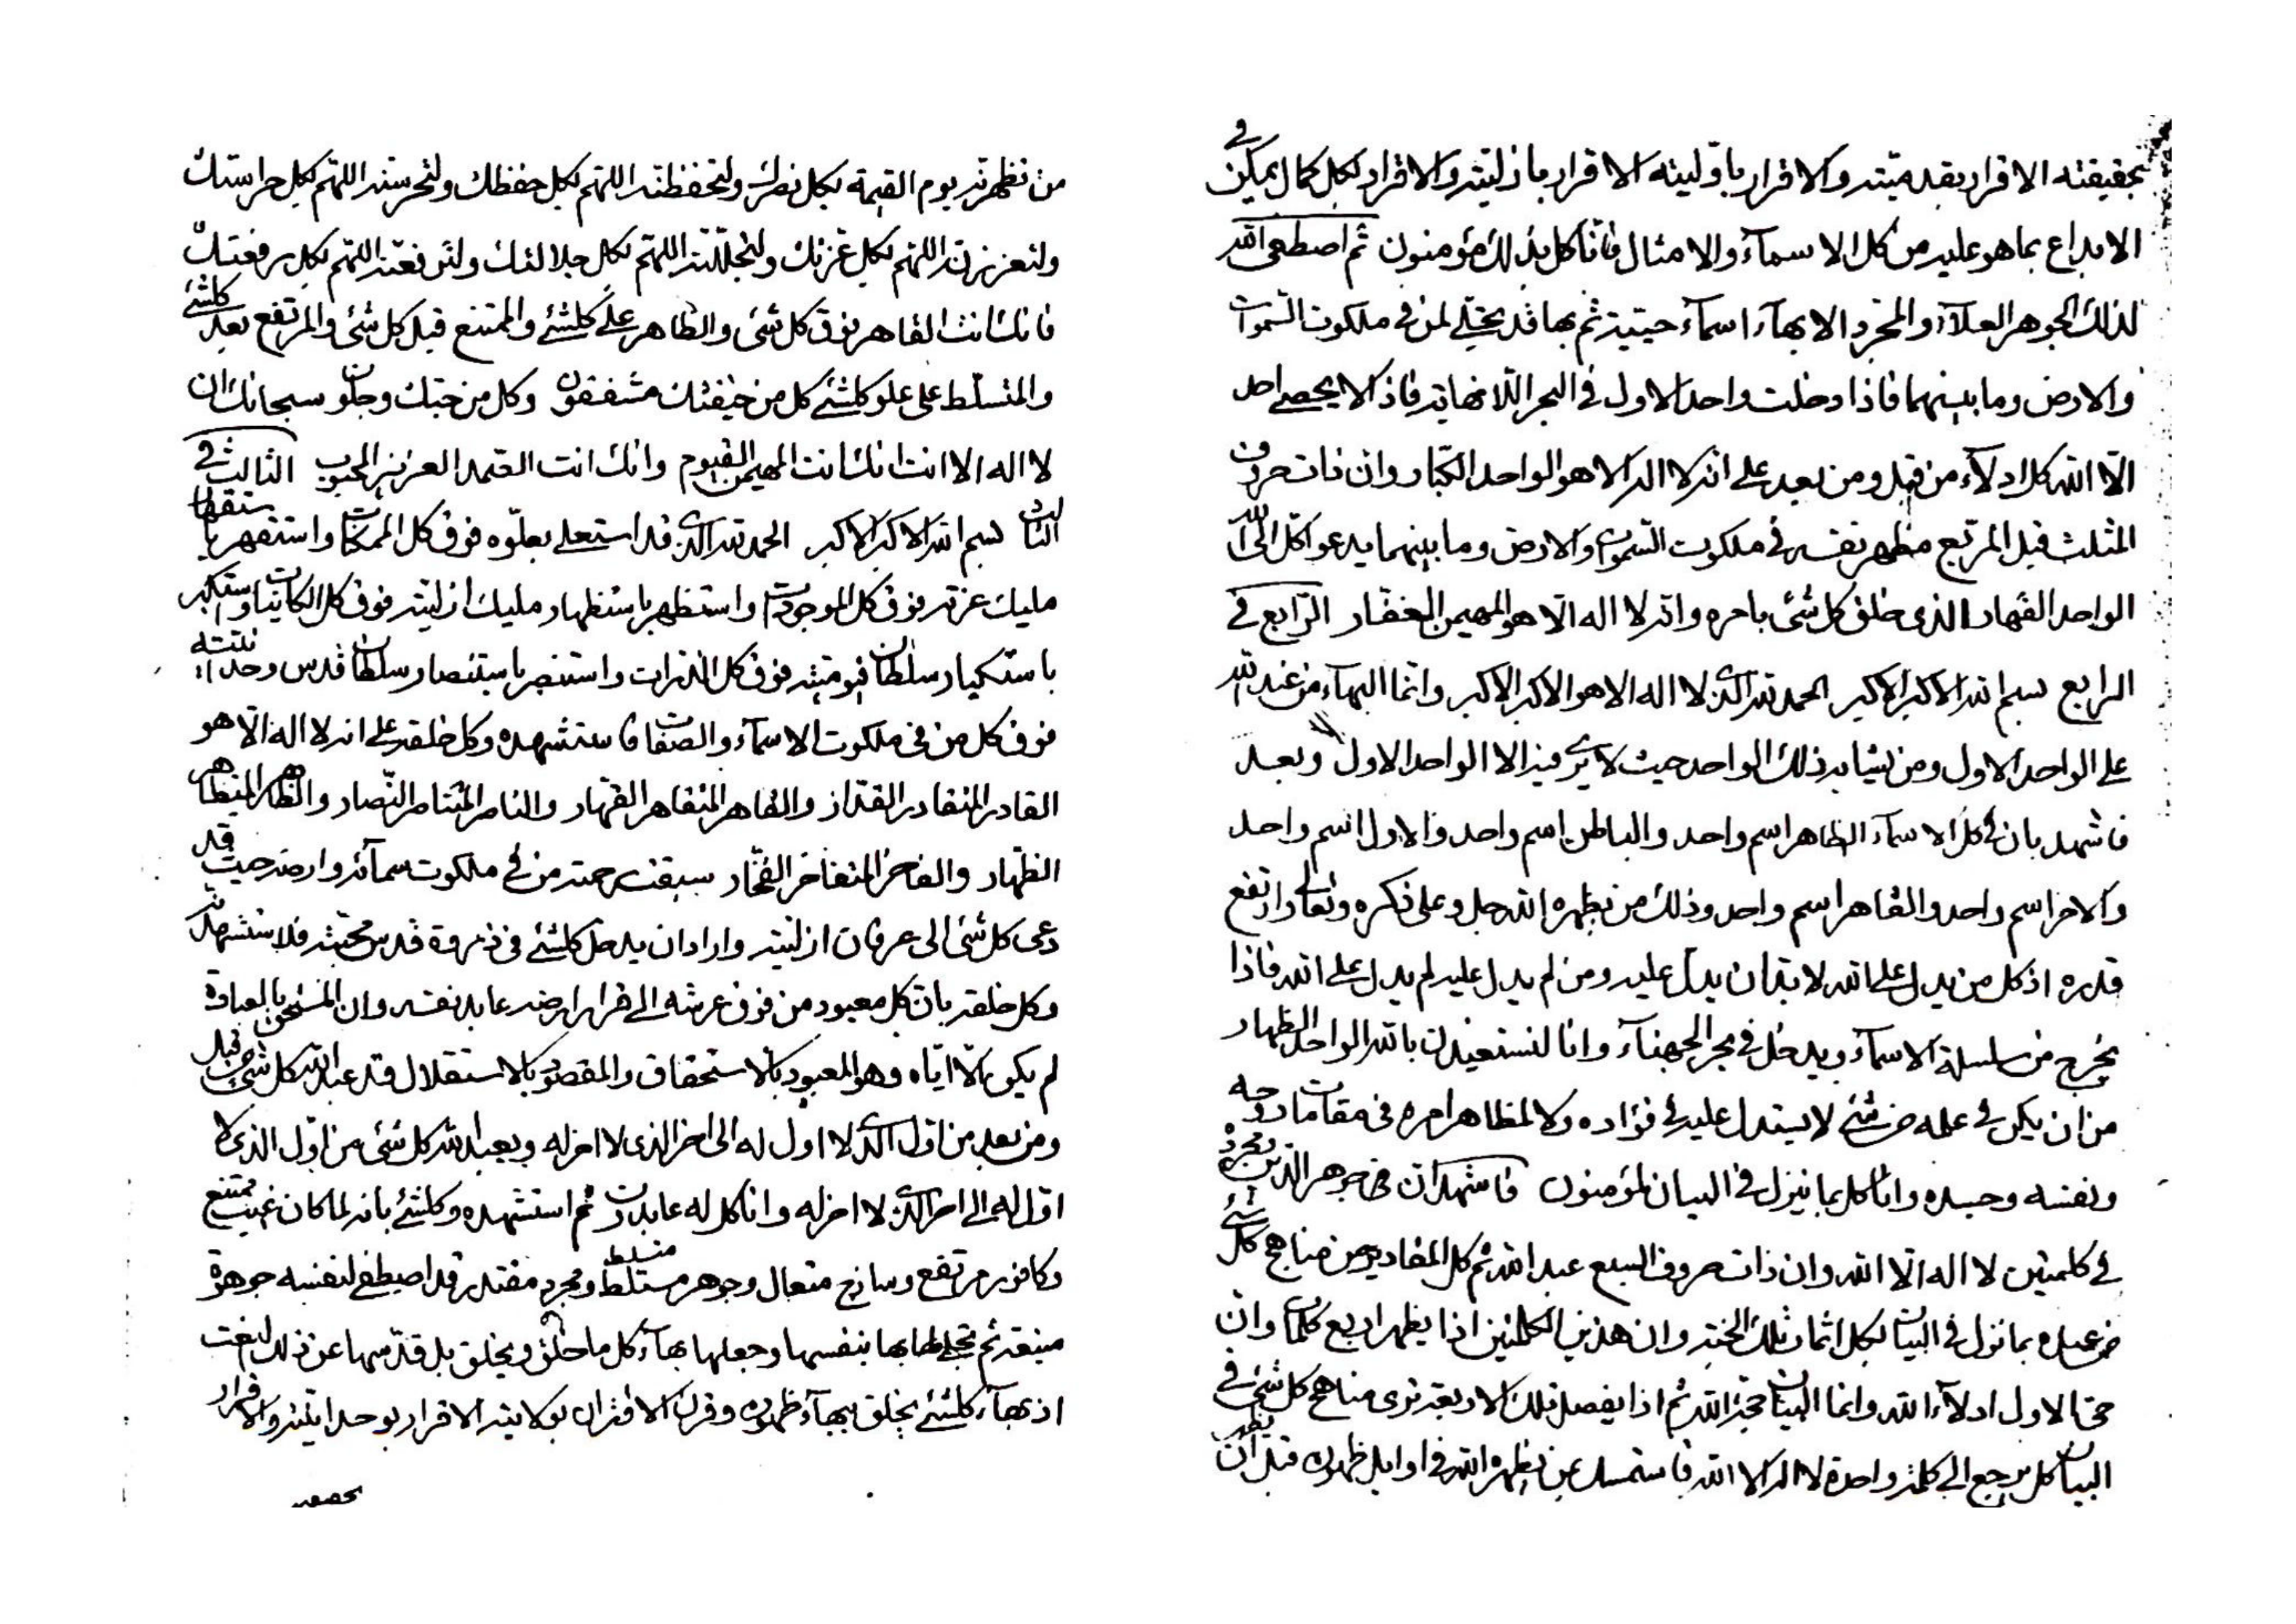 بحقيقته الاقرار بقدميته والاقرار باوليته الاقرار بازليته والاقرار لكل كمال يمكن في
الابداع بما هو عليه من كل الاسمآء والامثال فانا كل بذلك مؤمنون ثم اصطفى الله
لذلك الجوهر العلآء والمجرد الابهآء اسمآء حيتية ثم بها قد تجلى لمن في ملكوت السموات
والارض وما بينهما فاذا دخلت واحد الاول في البحر اللانهاية فاذا لا يحصي احد
الا الله كل ادلآء من قبل ومن بعد على انه لا اله الا هو الواحد الكبار وان ذات حروف
المثلث قبل المربع مظهر نفسه في ملكوت السموات والارض وما بينهما يدعو اكل الى الله
الواحد القهار الذي خلق كل شئ بامره وانه لا اله الا هو المهيمن الغفار الرابع في
الرابع بسم الله الاكبر الاكبر الحمد لله الذي لا اله الا هو الاكبر الاكبر وانما البهآء من عند الله
على الواحد الاول ومن يشابه ذلك الواحد حيث لا يرى فيه الا الواحد الاول وبعد
فاشهد بان في كل الاسمآء الظاهر اسم واحد والباطن اسم واحد والاول اسم واحد
والاخر اسم واحد والقاهر اسم واحد وذلك من يظهره الله جل وعلى ذكره وتعالى وارتفع
قدره اذ كل من يدل على الله لا بد ان يدل عليه ومن لم يدل عليه لم يدل على الله فاذا
يخرج من سلسلة الاسمآء ويدخل في بحر الجهنآء وانا لنستعيذن بالله الواحد الظهار
من ان يكن في علمه من شئ لا يستدل عليه في فؤاده ولا لمظاهر امره في مقامات روحه
ونفسه وجسده وانا كل بما ينزل في البيان لمؤمنون فاشهد ان في جوهر الدين ومجرده
في كلمتين لا اله الا الله وان ذات حروف السبع عبد الله ثم كل المقادير من مناهج كل شئ
من عبده بما نزل في البيان لكل اثمار تلك الجنة وان هذين الكلمتين اذا يظهر اربع كلمات وان
حي الاول ادلآء الله وانما البيان حجة الله ثم اذا يفصل تلك الاربعة ترى مناهج كل شئ في
البيان كل يرجع الى كلمة واحدة لا اله الا الله فاستمسك بمن يظهره الله في اوايل ظهوره قبل ان يظهر
من تظهرنه يوم القيمة بكل نصرك ولتحفظنه اللهم بكل حفظك ولتحرسنه اللهم بكل حراستك
ولتعززنه اللهم بكل عزتك ولتجللنه اللهم بكل جلالتك ولترفعنه اللهم بكل رفعتك
فانك انت القاهر فوق كل شئ والظاهر على كلشئ والممتنع قبل كل شئ والمرتفع بعد كلشئ
والمتسلط على علو كلشئ كل من خيفتك مشفقون وكل من خبتك وجلون سبحانك ان
لا اله الا انت انك انت المهيمن القيوم وانك انت الصمد العزيز المحبوب الثالث في
الثالث بسم الله الاكبر الاكبر الحمد لله الذي قد استعلى بعلوه فوق كل الممكنات واستقهر باستقهار
مليك عزته فوق كل الموجودات واستظهر باستظهار مليك ازليته فوق كل الكائنات واستكبر
باستكبار سلطان قيوميته فوق كل الذرات واستنصر باستنصار سلطان قدس وحدانيته
فوق كل من في ملكوت الاسمآء والصفات فاستشهده وكل خلقه على انه لا اله الا هو
القادر المتقادر القدار والقاهر المتقاهر القهار والناصر المتناصر النصار والظاهر المتظاهر
الظهار والفاخر المتفاخر الفخار سبقت رحمته من في ملكوت سمآئه وارضه حيث قد
دعى كل شئ الى عرفان ازليته واراد ان يدخل كلشئ في ذروة قدس محبته فلاستشهدنه
وكل خلقه بان كل معبود من فوق عرشه الى قرار ارضه عابد نفسه وان المستحق بالعبادة
لم يكن الا اياه وهو المعبود بالاستحقاق والمقصود بالاستقلال قد عبد الله كل شئ من قبل
ومن بعد من اول الذي لا اول له الى اخر الذي لا اخر له ويعبد الله كل شئ من اول الذي لا
اول له الى اخر الذي لا اخر له وانا كل له عابدون ثم استشهده وكلشئ بانه لما كان غيب ممتنع
وكافور مرتفع وساذج متعال وجوهر مستلط متسلط ومجرد مقتدر قد اصطفى لنفسه جوهرة
منيعة ثم تجلى لها بها بنفسها وجعلها بهآء كل ما خلق ويخلق بل قدسها عن ذلك النعت
اذ بهآء كلشئ يخلق ببهآء ظهوره وقرن الاقتران بولايته الاقرار بوحدانيته والاقرار
بحقيقته